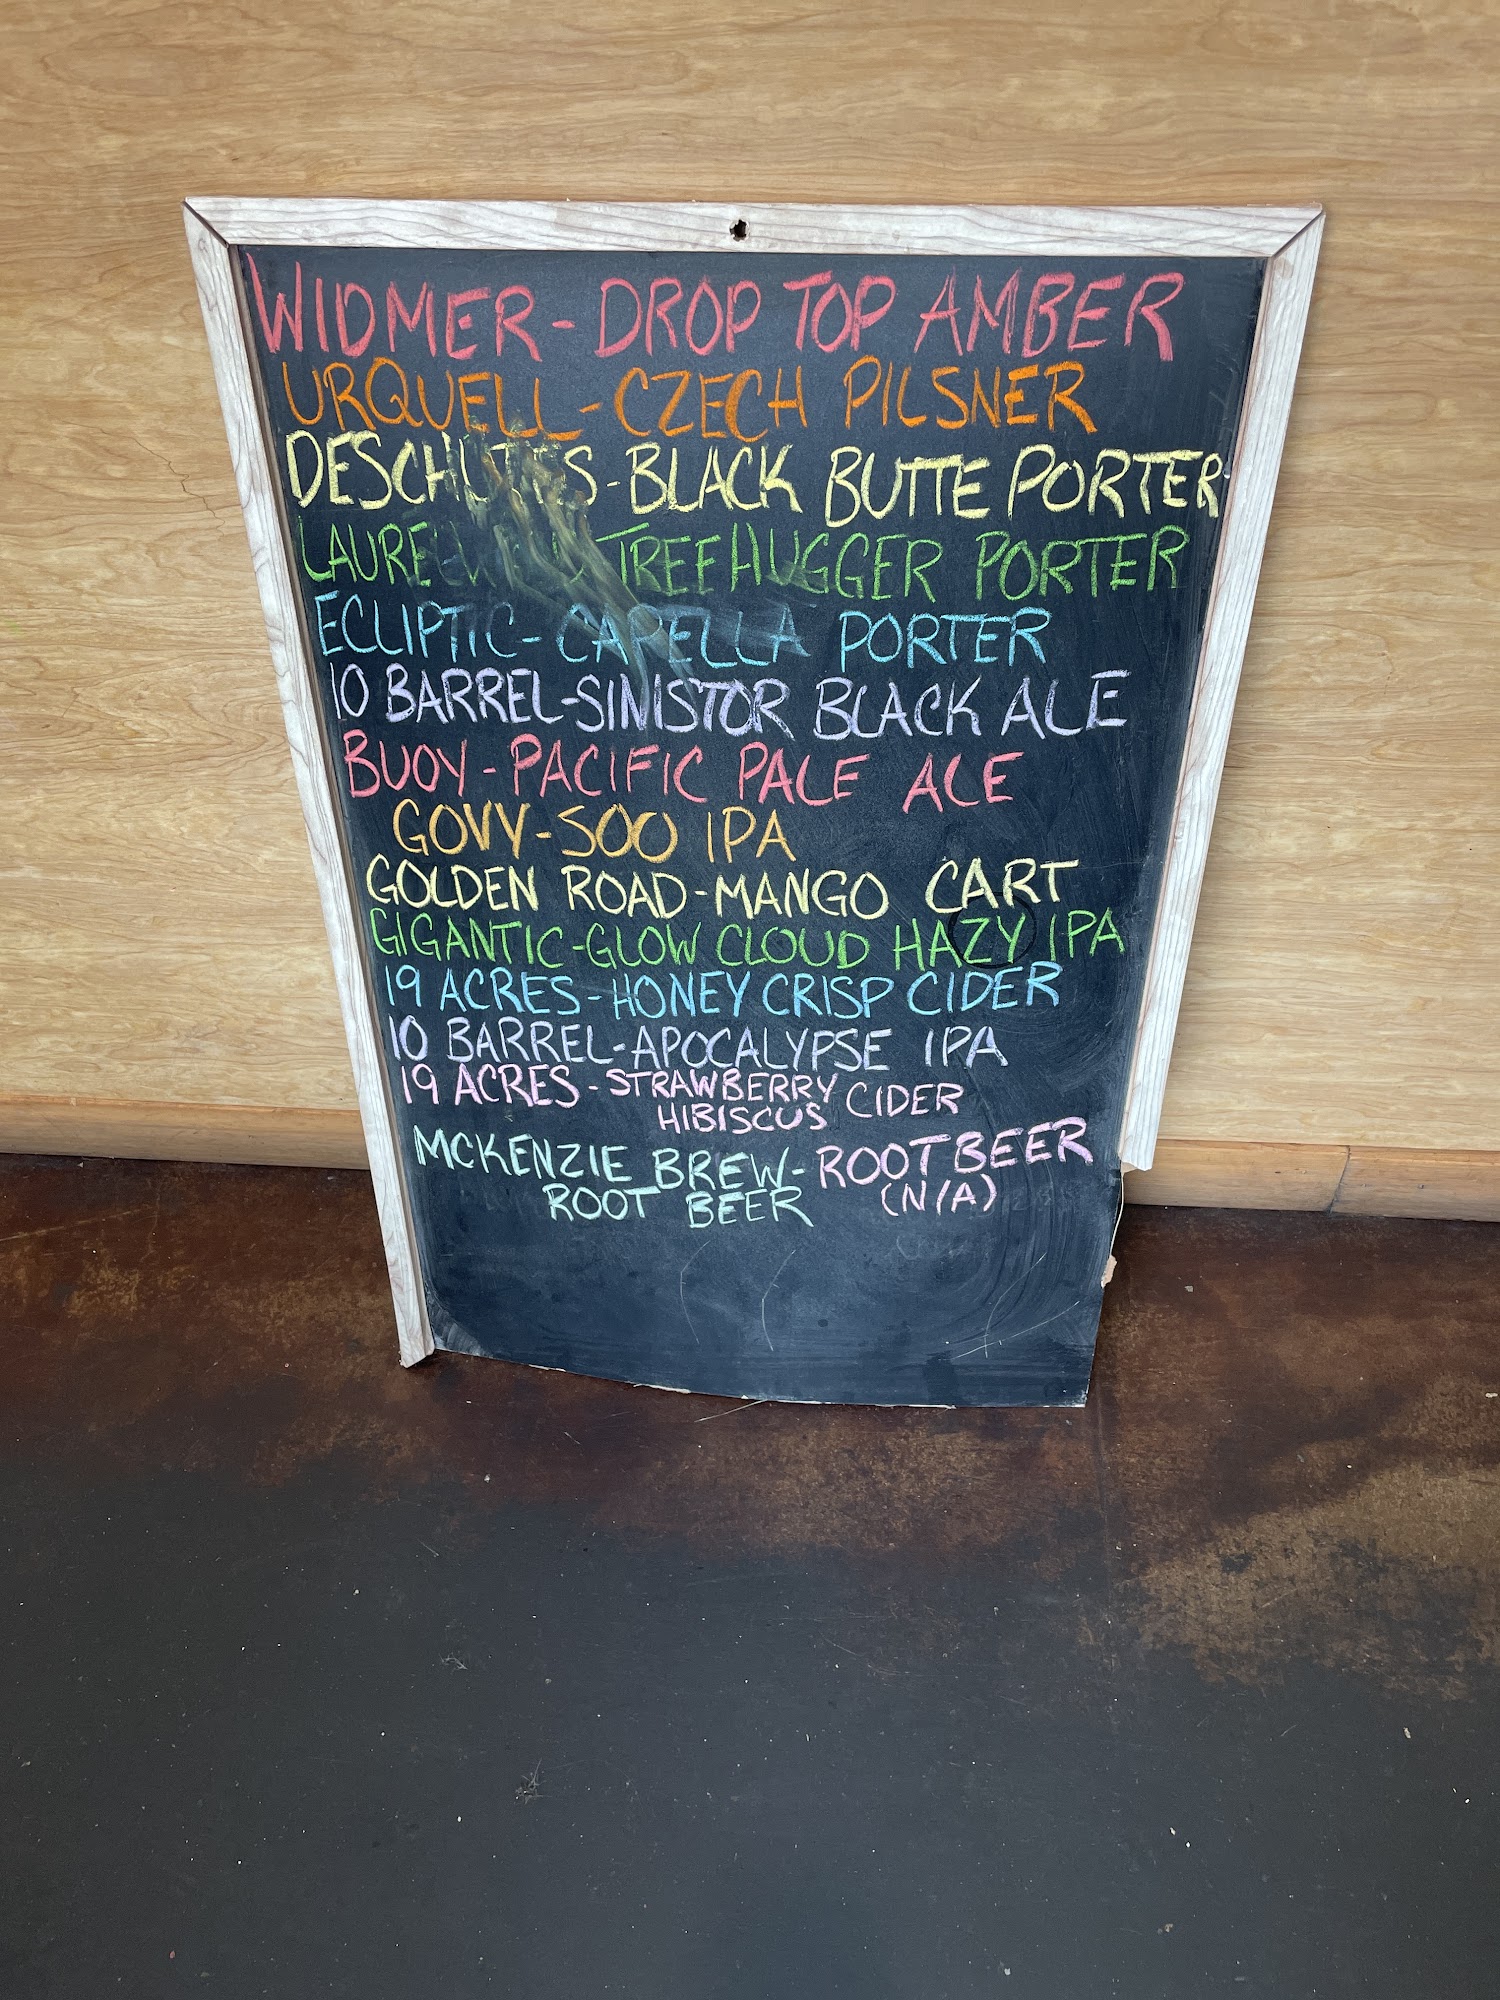 WIDMER-DROP TOP AMBER
URQUELL-CZECH PILSNER
DESCHUTES-BLACK BUTTE PORTER
TREEHUGGER PORTER
ECLIPTIC-CAPELLA PORTER
10 BARREL-SINISTOR BLACK ALE
BUOY-PACIFIC PALE ALE
GOVY-500 IPA
GOLDEN ROAD-MANGO CART
GIGANTIC-GLOW CLOUD HAZY IPA
19 ACRES-HONEY CRISP CIDER
10 BARREL-APOCALYPSE IPA
19 ACRES-STRAWBERRY HIBISCUS CIDER
MCKENZIE BREW-ROOT BEER
ROOT BEER (N/A)